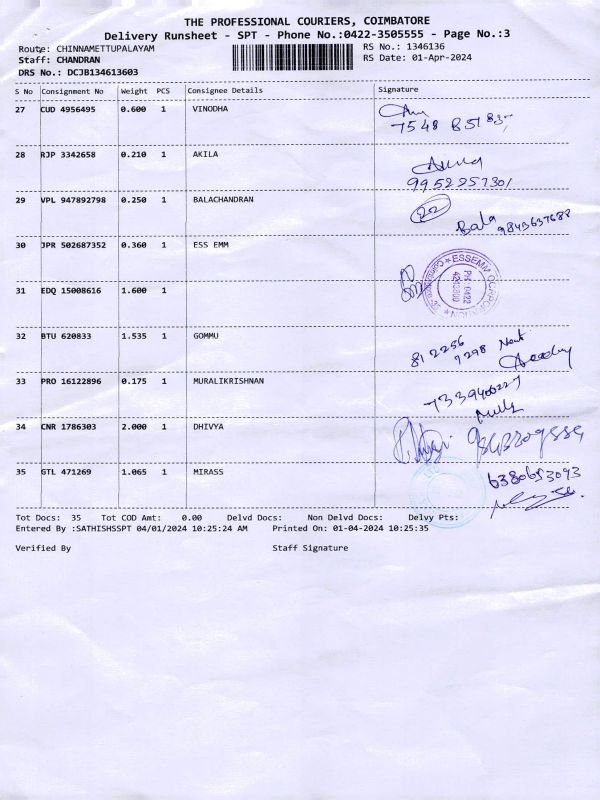 THE PROFESSIONAL COURIERS, COIMBATORE
Delivery Runsheet - SPT - Phone No.:0422-3505555 - Page No.:3
Route: CHINNAMETTUPALAYAM RS No.: 1346136
Staff: CHANDRAN RS Date: 01-Apr-2024
DRS No.: DCJB134613603
S No Consignment No Weight PCS Consignee Details Signature
27 CUD 4956495 0.600 1 VINODHA
28 RJP 3342658 0.210 1 AKILA
9952957301
29 VPL 947892798 0.250 1 BALACHANDRAN
Bala 9843637688
30 JPR 502687352 0.360 1 ESS EMM
31 EDQ 15008616 1.600 1
32 BTU 620833 1.535 1 GOMMU
812256
7298
33 PRO 16122896 0.175 1 MURALIKRISHNAN
34 CNR 1786303 2.000 1 DHIVYA
35 GTL 471269 1.065 1 MIRASS
6380653093
Tot Docs: 35 Tot COD Amt: 0.00 Delvd Docs: Non Delvd Docs: Delvy Pts:
Entered By :SATHISHSSPT 04/01/2024 10:25:24 AM Printed On: 01-04-2024 10:25:35
Verified By Staff Signature